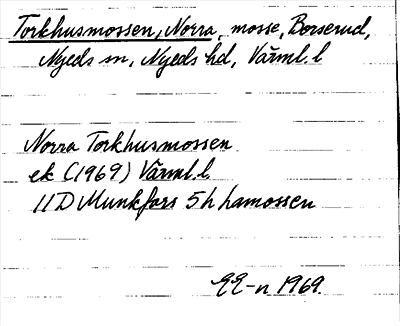 Torkhusmossen, Norra, mosse, Borserud,
Nyeds sn, Nyeds hd, Värml. l
Norra Torkhusmossen
ek (1969) Värml. l
11D Munkfors 5h hamossen
EE-n 1969.